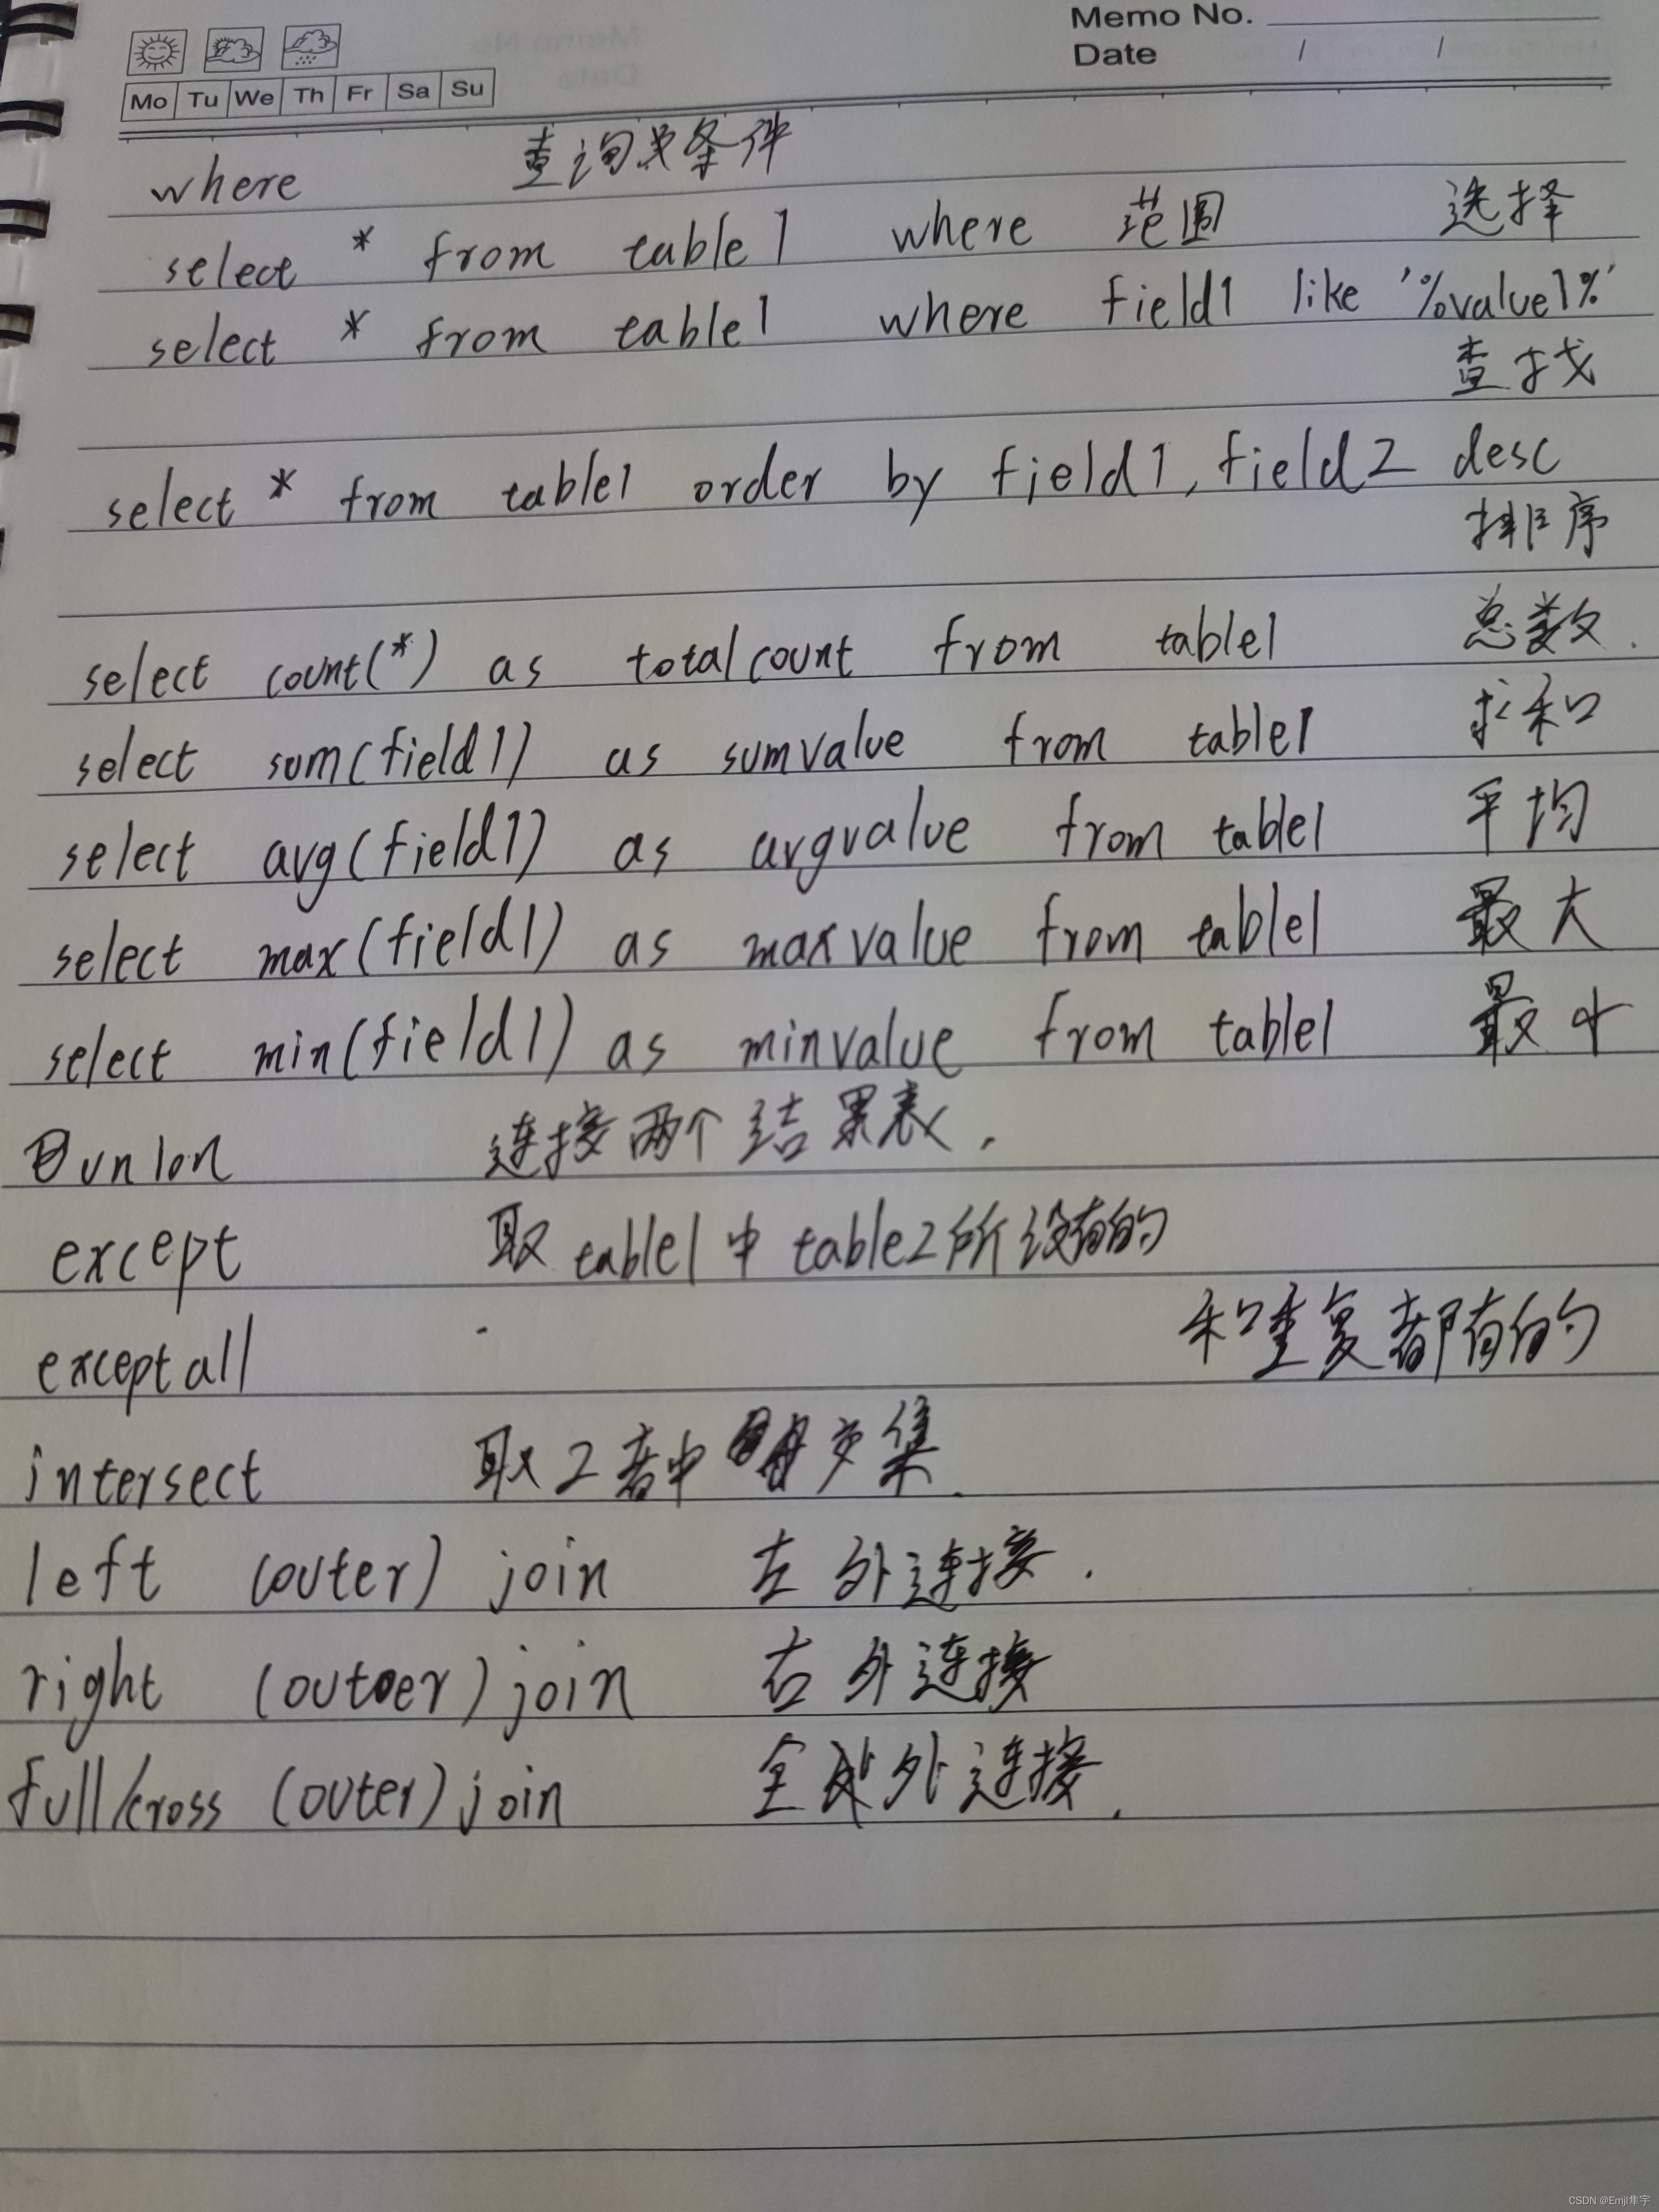 Memo No.
Date / /
Mo Tu We Th Fr Sa Su
where 查询 条件
select * from table1 where 范围 选择
select * from table1 where field1 like '%value1%'
查找
select * from table1 order by field1, field2 desc
排序
select count(*) as totalcount from table1 总数.
select sum(field1) as sumvalue from table1 求和
select avg(field1) as avgvalue from table1 平均
select max(field1) as maxvalue from table1 最大
select min(field1) as minvalue from table1 最小
union 连接两个结果表.
except 取table1中table2所没有的
except all 和重复都有的
intersect 取2者中 交集.
left (outer) join 左外连接.
right (outer) join 右外连接
full/cross (outer) join 全 外连接.
CSDN @Emjl隼宇